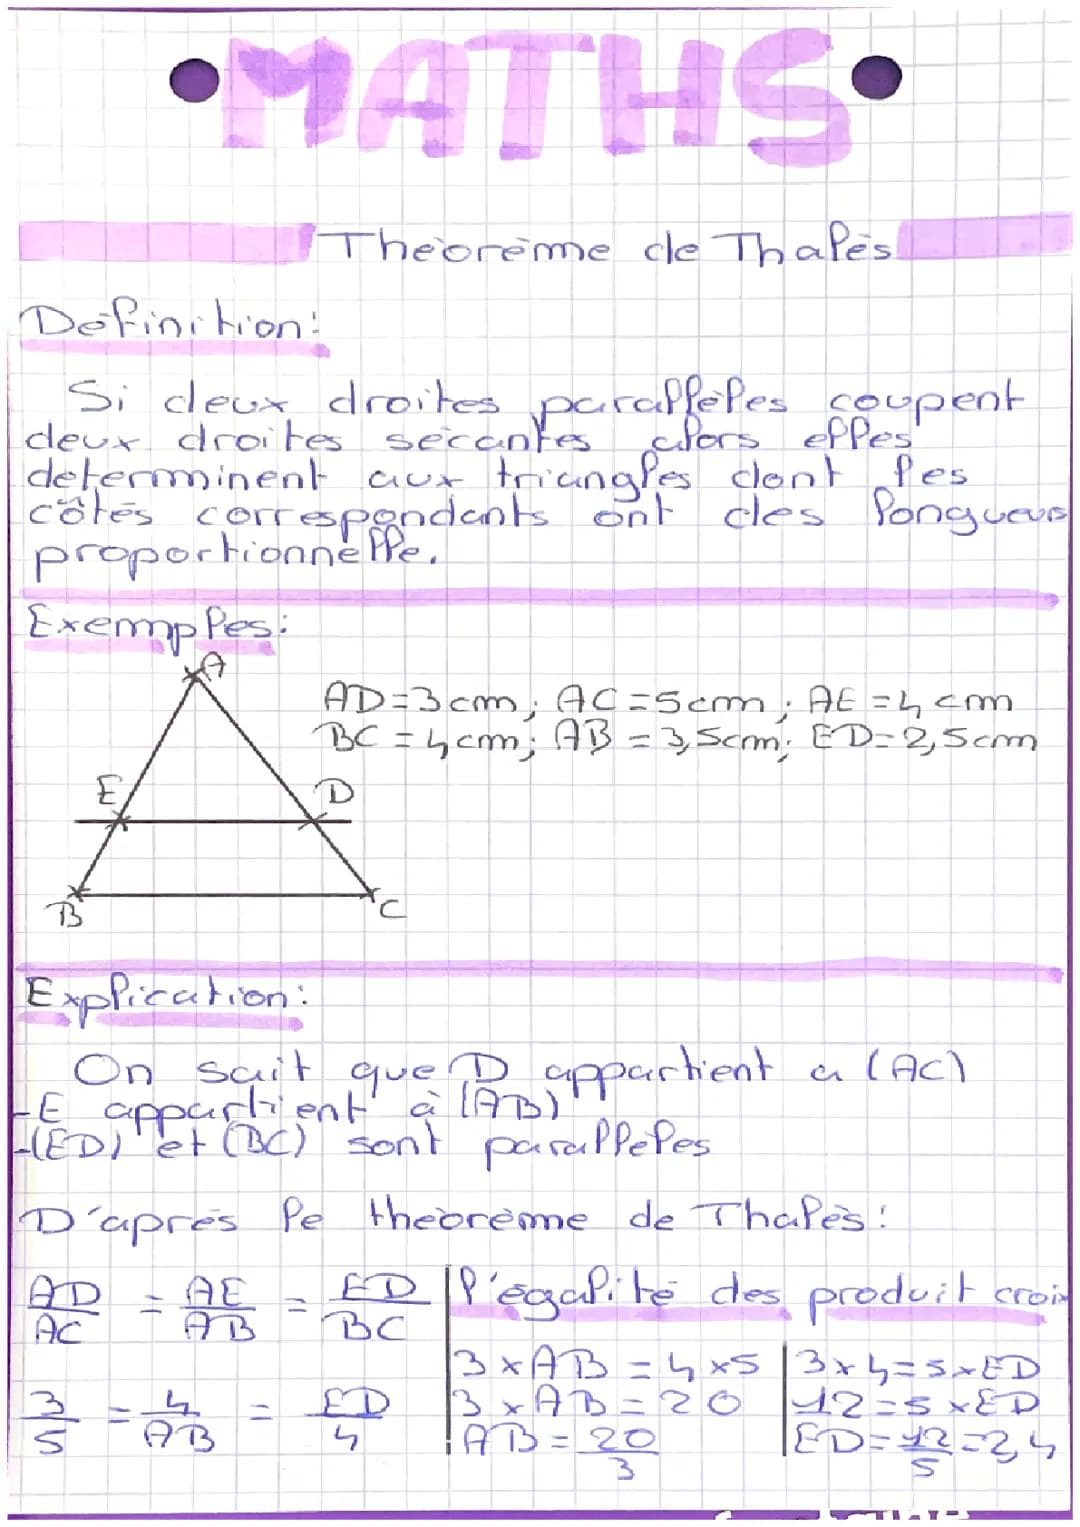 MATHS
Théorème de Thalès
Définition:
Si deux droites parallèles coupent
deux droites sécantes alors elles
determinent aux triangles dont les
côtés correspondants ont des longueurs
proportionnelle.
Exemples:
A
AD=3cm; AC=5cm; AE=4cm
BC=4cm; AB=3,5cm; ED=2,5cm
E D
B C
Explication:
On sait que D appartient a (AC)
-E appartient à (AB)
-(ED) et (BC) sont parallèles
D'aprés le théorème de Thalès:
AD/AC = AE/AB = ED/BC
3/5 = 4/AB = ED/4
l'égalité des produit croi
3×AB=4×5
3×AB=20
AB=20/3
3×4=5×ED
12=5×ED
ED=12/5=2,4